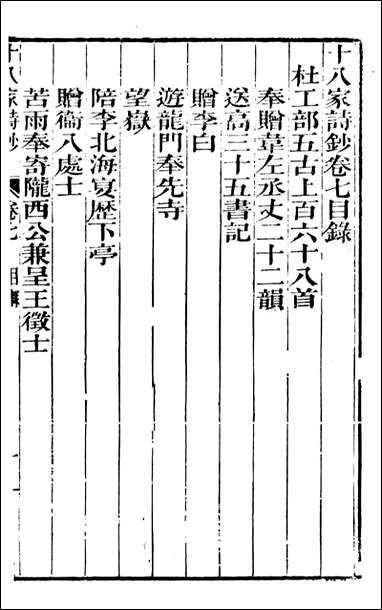 十八家詩鈔卷七目錄
杜工部五古上百六十八首
奉贈韋左丞丈二十二韻
送高三十五書記
贈李白
遊龍門奉先寺
望嶽
陪李北海宴歷下亭
贈衞八處士
苦雨奉寄隴西公兼呈王徵士
十八家詩鈔 卷七